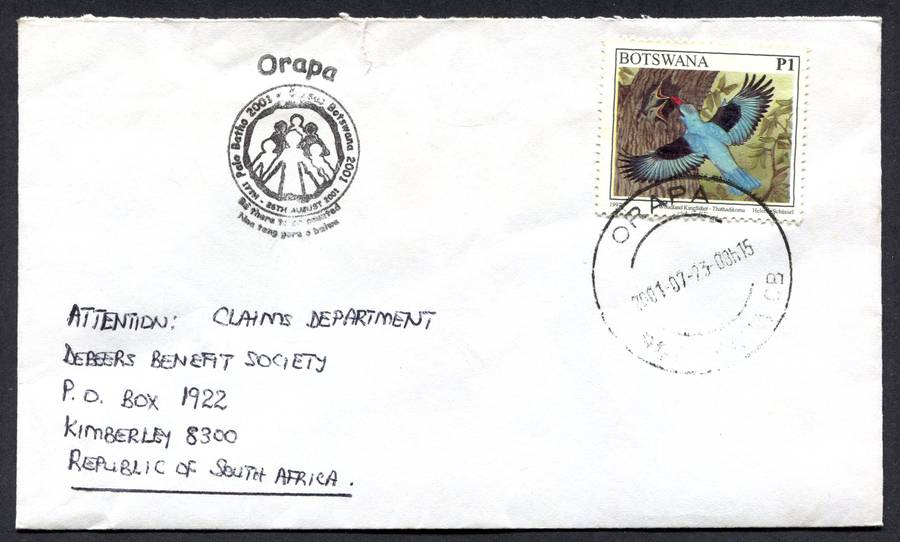 Orapa
Palo Batho 2001 • Census Botswana 2001
17TH - 26TH AUGUST 2001
Be there to be counted
Nna teng gore o balwe
BOTSWANA P1
1997 Woodland Kingfisher - Thathadikoma Helena Schüssel
ORAPA
2001-07-23-08h15
ATTENTION: CLAIMS DEPARTMENT
DEBEERS BENEFIT SOCIETY
P.O. BOX 1922
KIMBERLEY 8300
REPUBLIC OF SOUTH AFRICA.